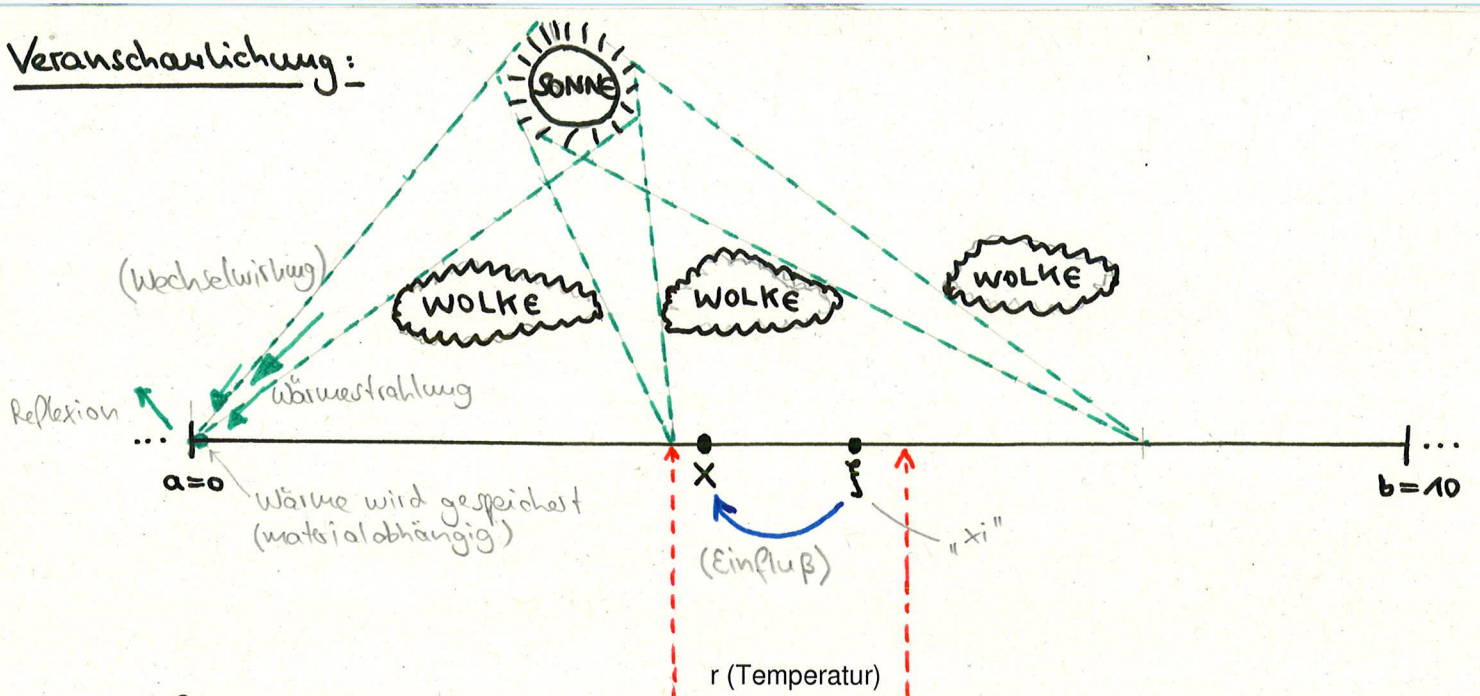 Veranschaulichung:
SONNE
(Wechselwirkung)
WOLKE
WOLKE
WOLKE
Wärmestrahlung
Reflexion
...
...
a=0
x
ξ
b=10
Wärme wird gespeichert
(materialabhängig)
(Einfluß)
„xi"
r (Temperatur)